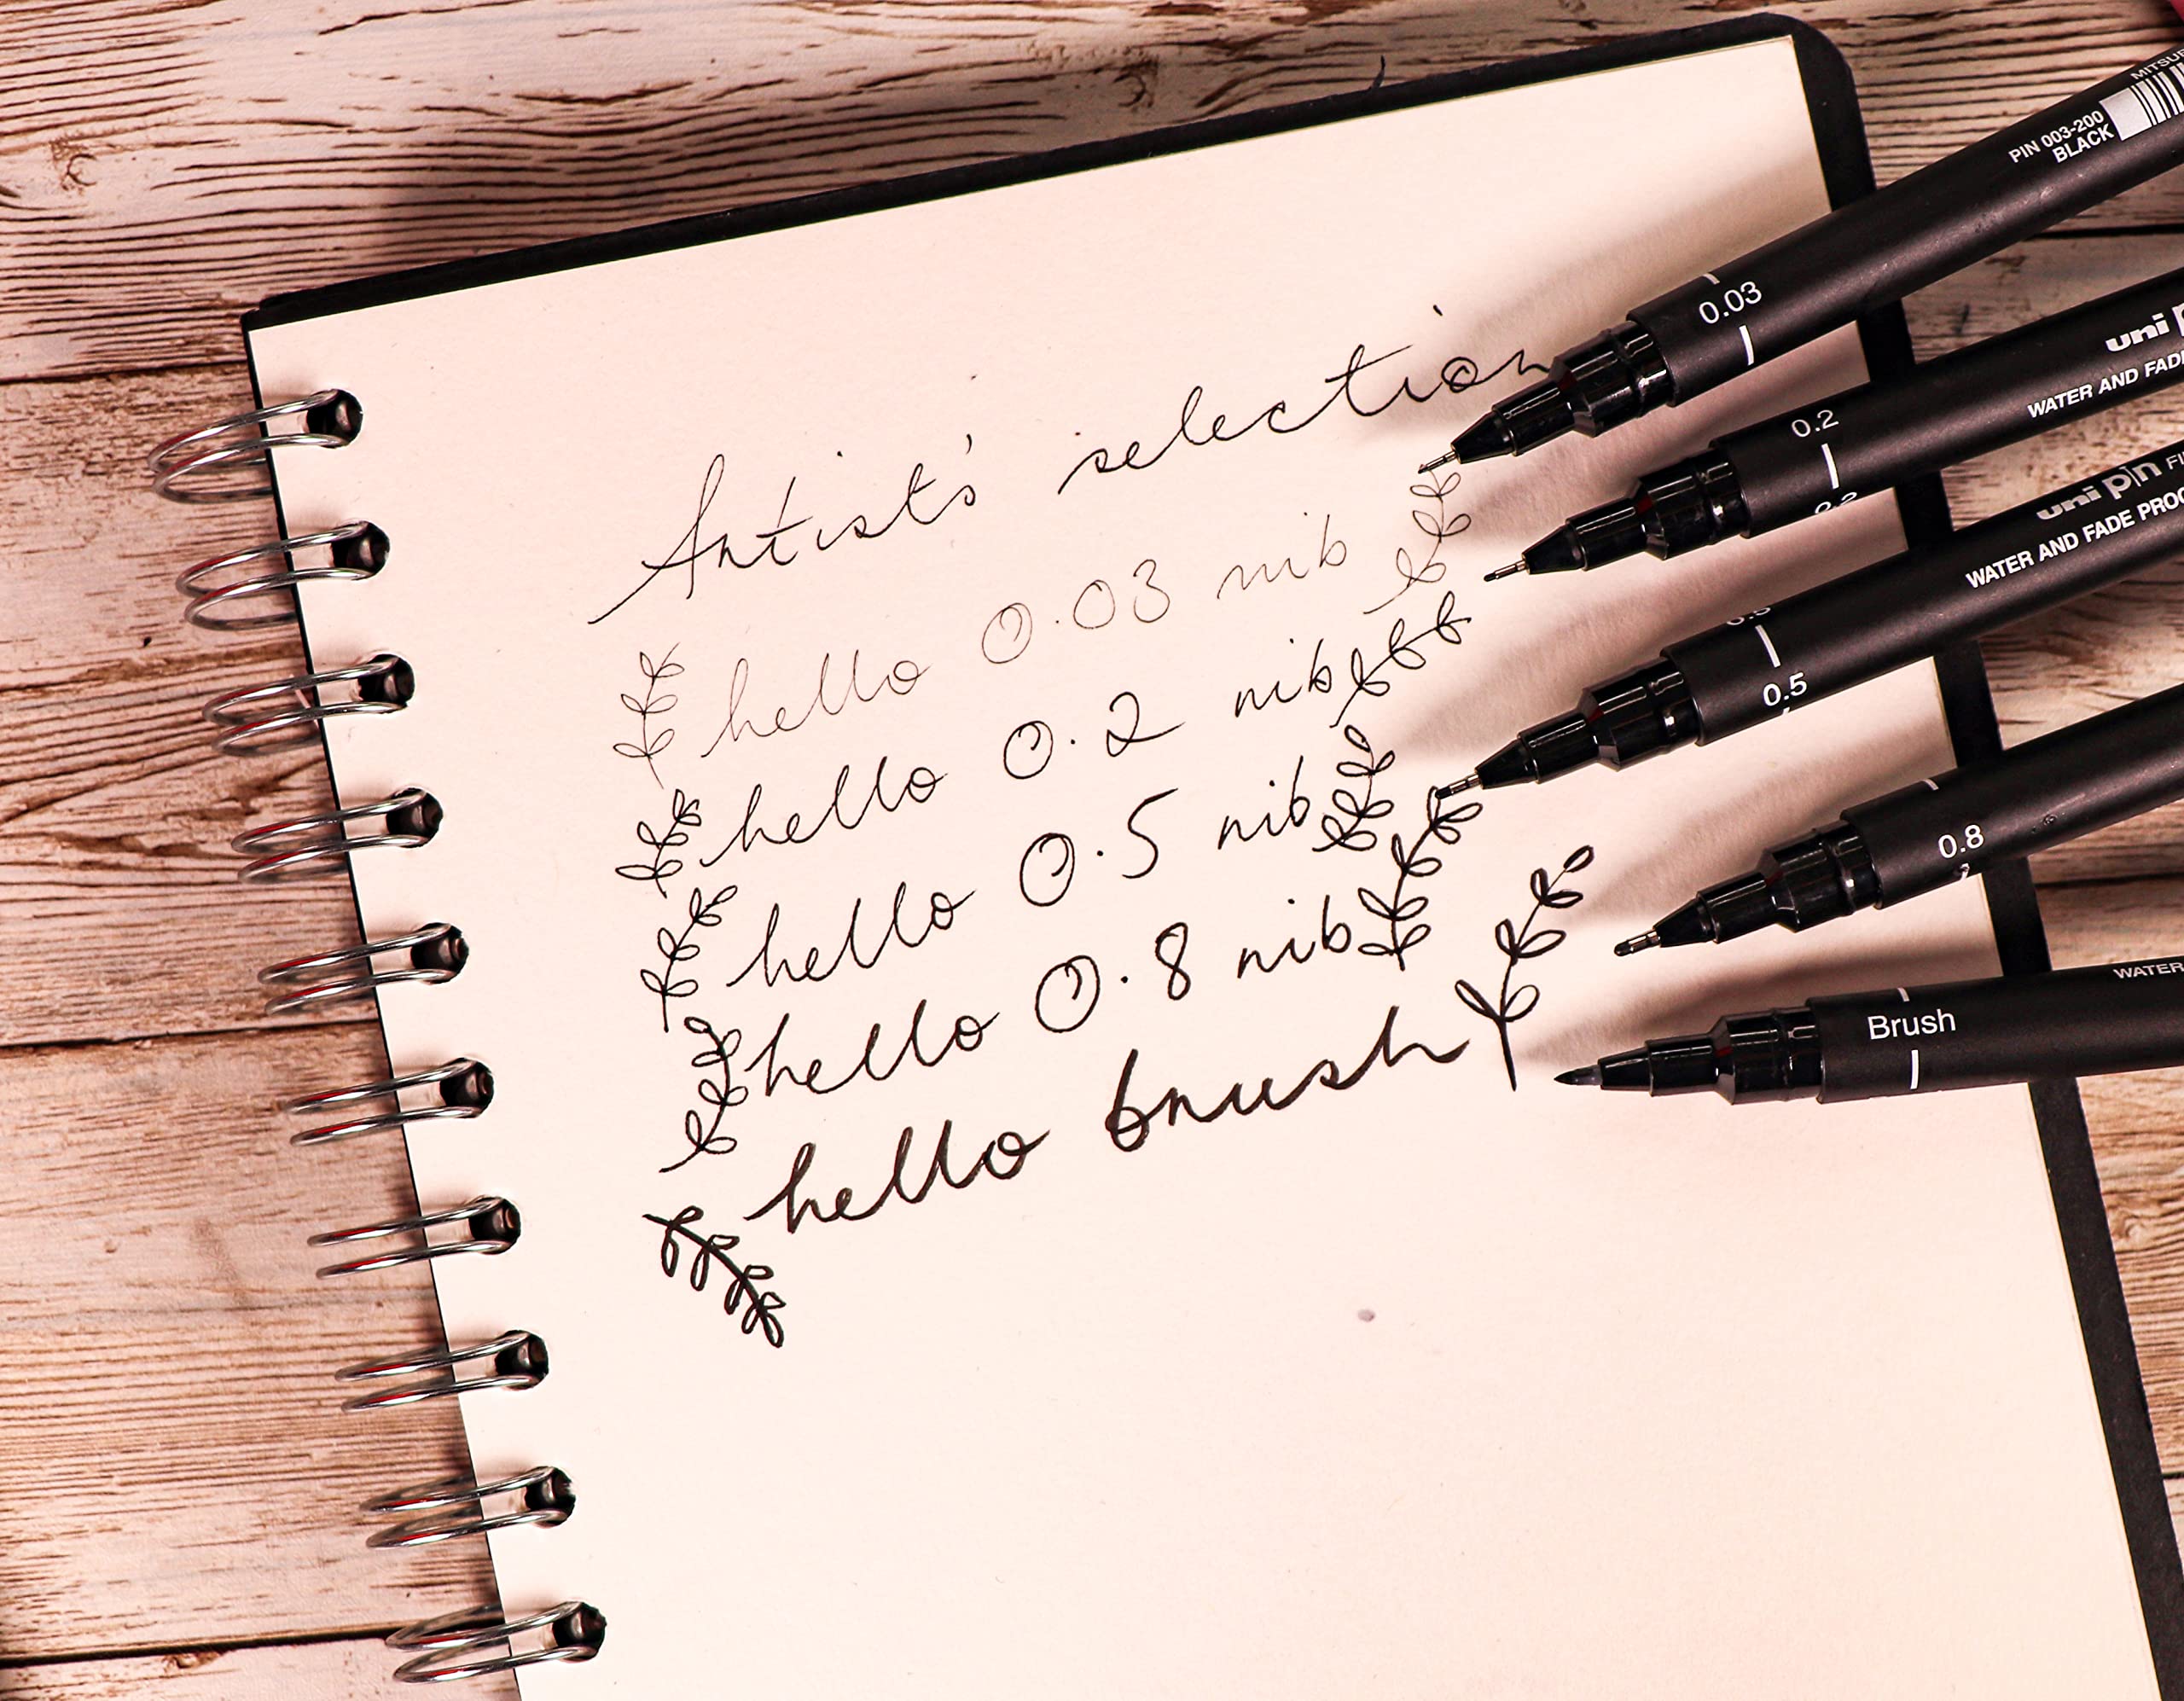 Artist's selection
hello 0.03 nib
hello 0.2 nib
hello 0.5 nib
hello 0.8 nib
hello brush
PIN 003-200
BLACK
0.03
uni
WATER AND
0.2
0.2
uni pin
WATER AND FADE
0.5
0.5
0.8
WATER
Brush